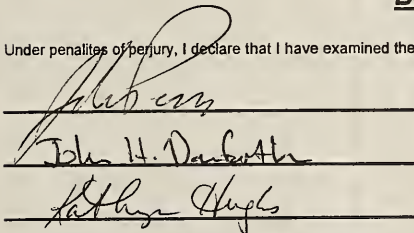 Under penalites of perjury, I declare that I have examined the
John H. Danforth
Kathryn Hughs